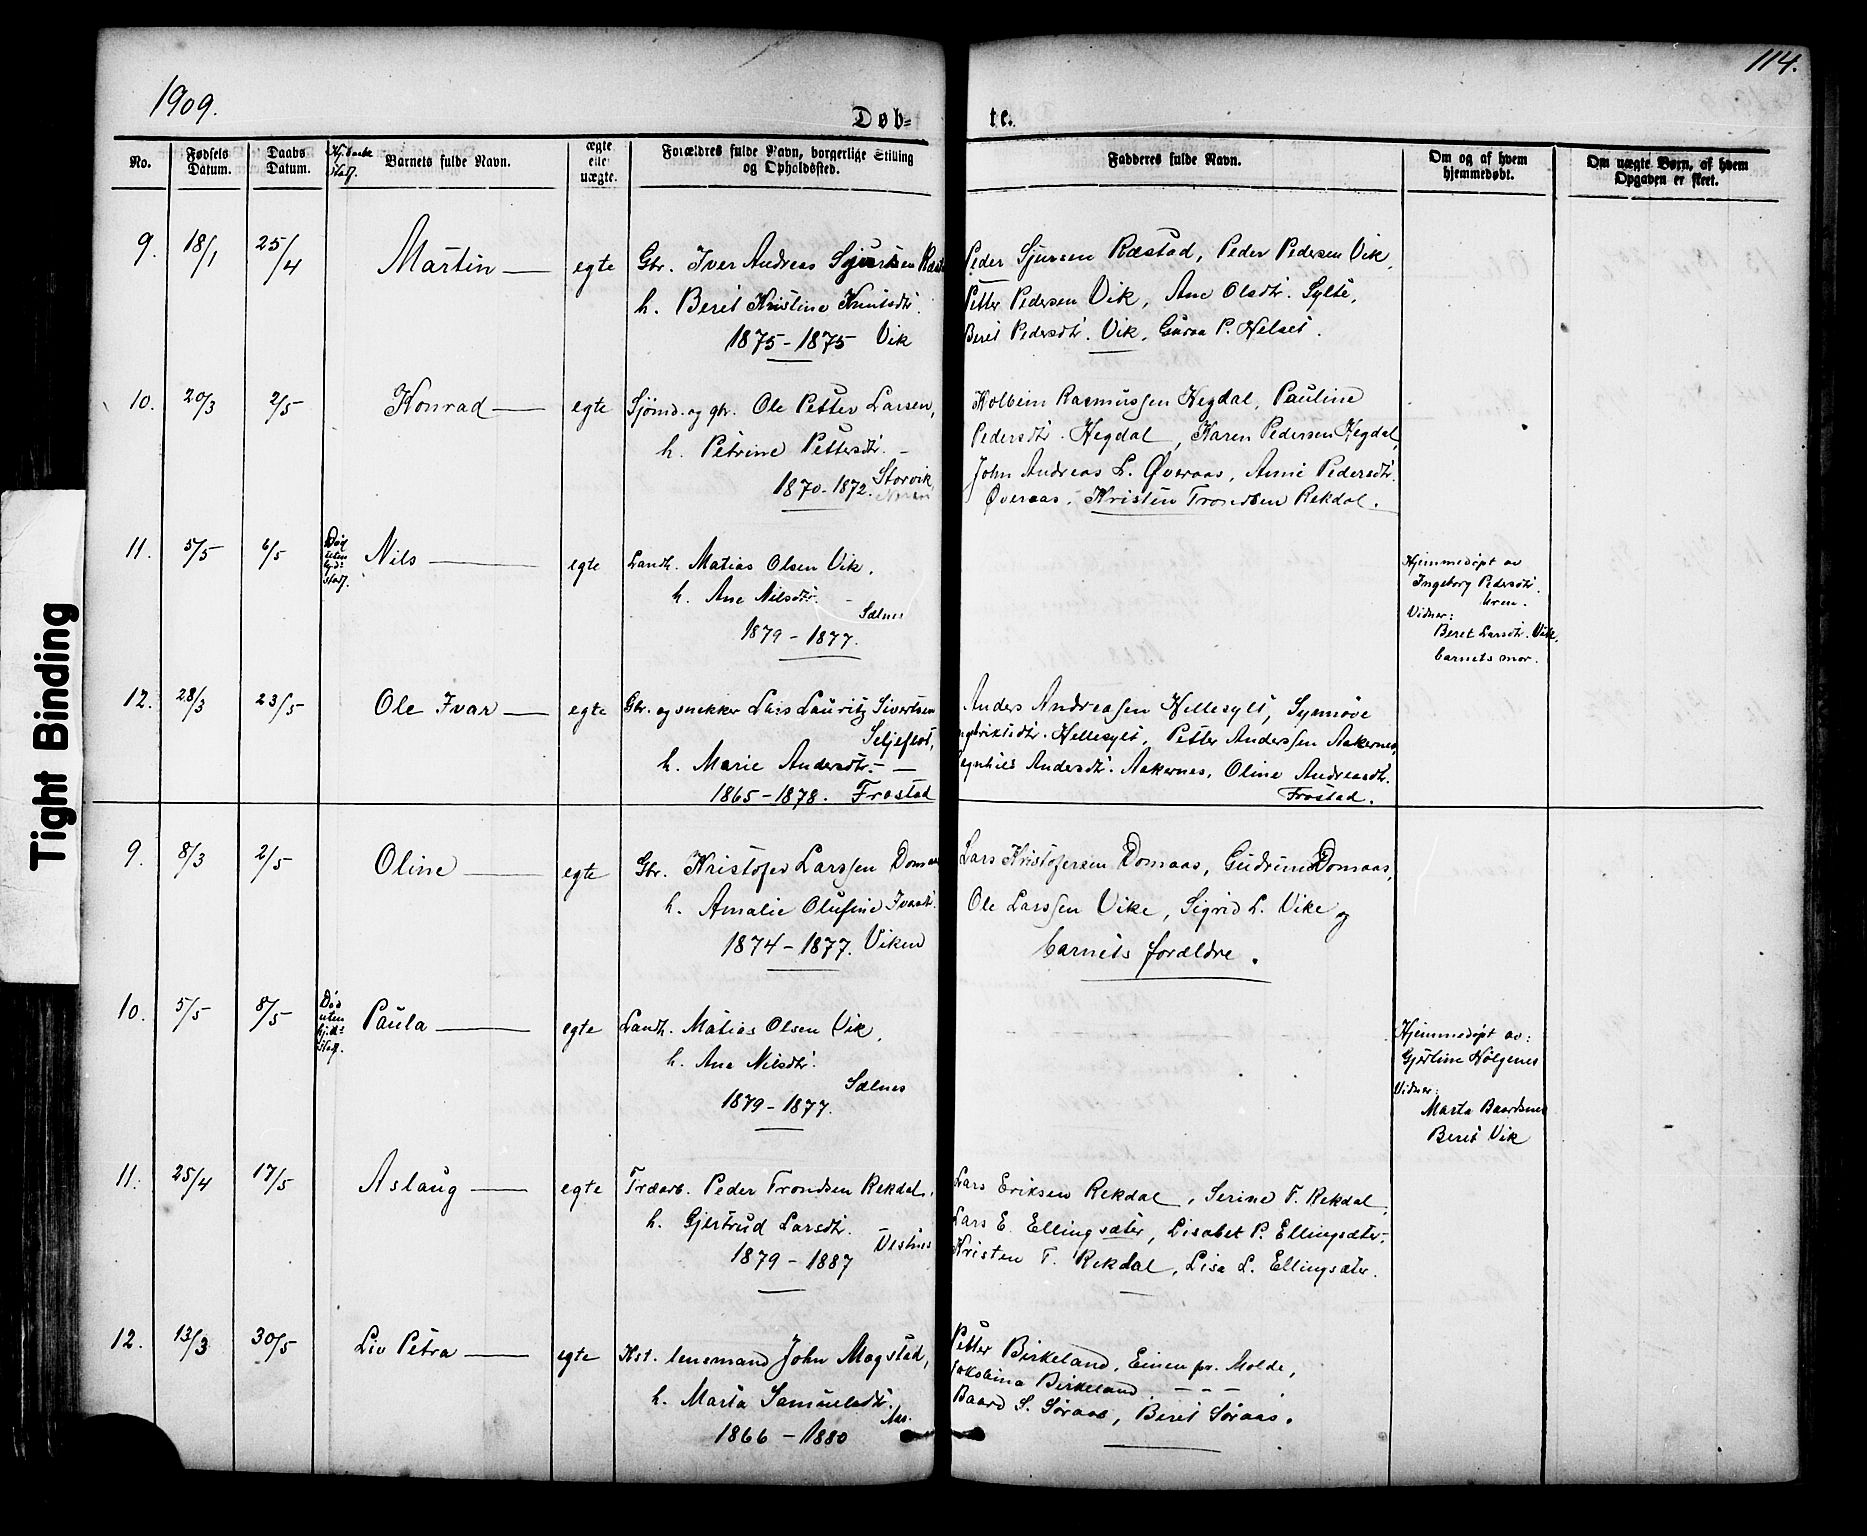 114.
1909.
Døb= te.
No. Fødsels Datum. Daabs Datum. Barnets fulde Navn. ægte eller uægte. Forældres fulde Navn, borgerlige Stilling og Opholdssted. Fadderes fulde Navn. Om og af hvem hjemmedøbt. Om uægte Børn, af hvem Opgaven er skeet.
9. 18/1 25/4 Martin — egte Gbr. Iver Andreas Sjursen
h. Beret Kristine Knutsdtr.
1875 - 1875 Vik
Peder Sjursen Ræstad, Peder Pedersen Vik,
Petter Pedersen Vik, Ane Olsdtr. Sylte,
Beret Pedersdtr. Vik, Guroa P. Helset.
10. 20/3 2/5 Konrad — egte Sjömd. og gbr. Ole Petter Larsen,
h. Petrine Pettersdtr. –
1870 - 1872. Storvik
Kolbein Rasmussen Hegdal, Pauline
Pedersdtr. Hegdal, Karen Pedersen Hegdal,
John Andreas L. Øveraas, Anne Pedersdtr.
Øveraas, Kristen Trondsen Rekdal.
11. 5/5 6/5 Død uten Nils — egte Landh. Matias Olsen Vik,
h. Ane Nilsdtr. –
Sælnes
1879 - 1877.
Hjemmedøpt av
Ingeborg Pedersdtr.
Vidner:
Beret Larsdtr. Vik,
barnets mor.
12. 28/3 23/5 Ole Ivar — egte Gbr. og snekker Lars Lauritz Sivertsen
Seljeflot,
h. Marie Andersdtr. – —
1865 - 1878. Frostad
Anders Andreassen Hellesylt, Synnøve
Hellesylt, Petter Anderssen Aakernes,
Andersdtr. Aakernes, Oline Andreasdtr.
Frostad.
9. 8/3 2/5 Oline — egte Gbr. Kristofer Larssen Domaas
h. Amalie Olufine
1874 - 1877. Viken
Lars Kristofersen Domaas, Gudrun Domaas,
Ole Larssen Vike, Sigrid L. Vike og
barnets forældre.
10. 5/5 8/5 Død uten Paula — egte Landh. Matias Olsen Vik,
h. Ane Nilsdtr.
Sælnes
1879 - 1877.
Hjemmedøpt av:
Gjertine Hølgenes
Vidner:
Marta Baardsnes
Beret Vik
11. 25/4 17/5 Aslaug — egte Træarb. Peder Trondsen Rekdal,
h. Gjertrud Larsdtr.
Vestnes
1879 - 1887
Lars Eriksen Rekdal, Serine T. Rekdal,
Lars E. Ellingsæter, Lisabet P. Ellingsæter,
Kristen T. Rekdal, Lisa L. Ellingsæter.
12. 13/3 30/5 Liv Petra — egte Kst. lensmand John Magstad,
h. Marta Samuelsdtr.
Aas.
1866 - 1880
Petter Birkeland, Einen pr. Molde,
Birkeland – – –
Baard S. Søraas, Beret Søraas.
Tight Binding